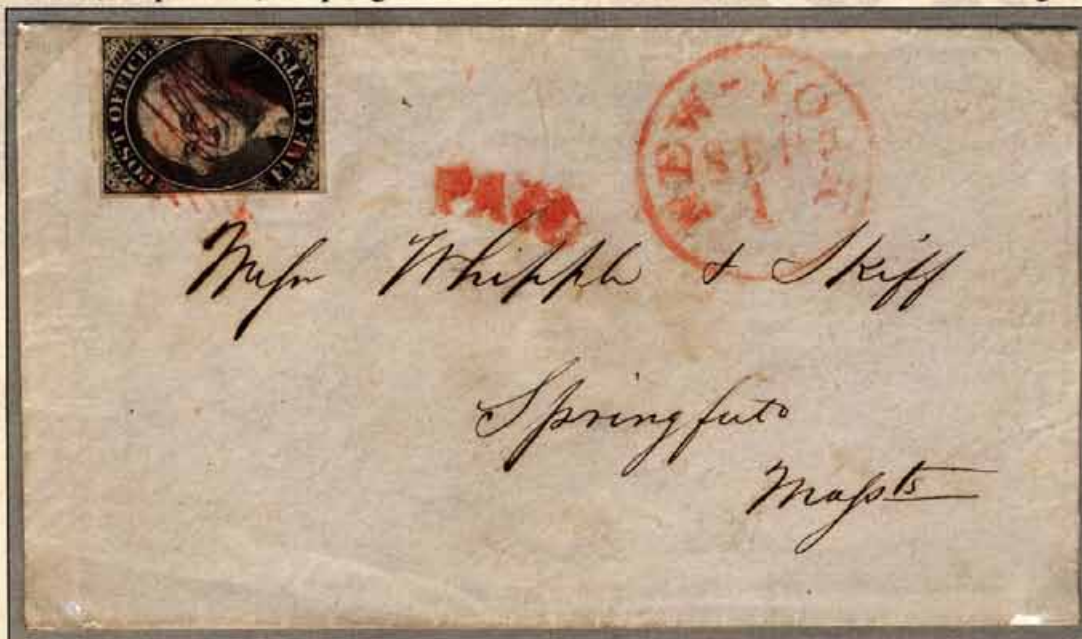 POST OFFICE
FIVE CENTS
PAID
NEW-YORK
SEP
1
Messr Whipple & Skiff
Springfield
Massts